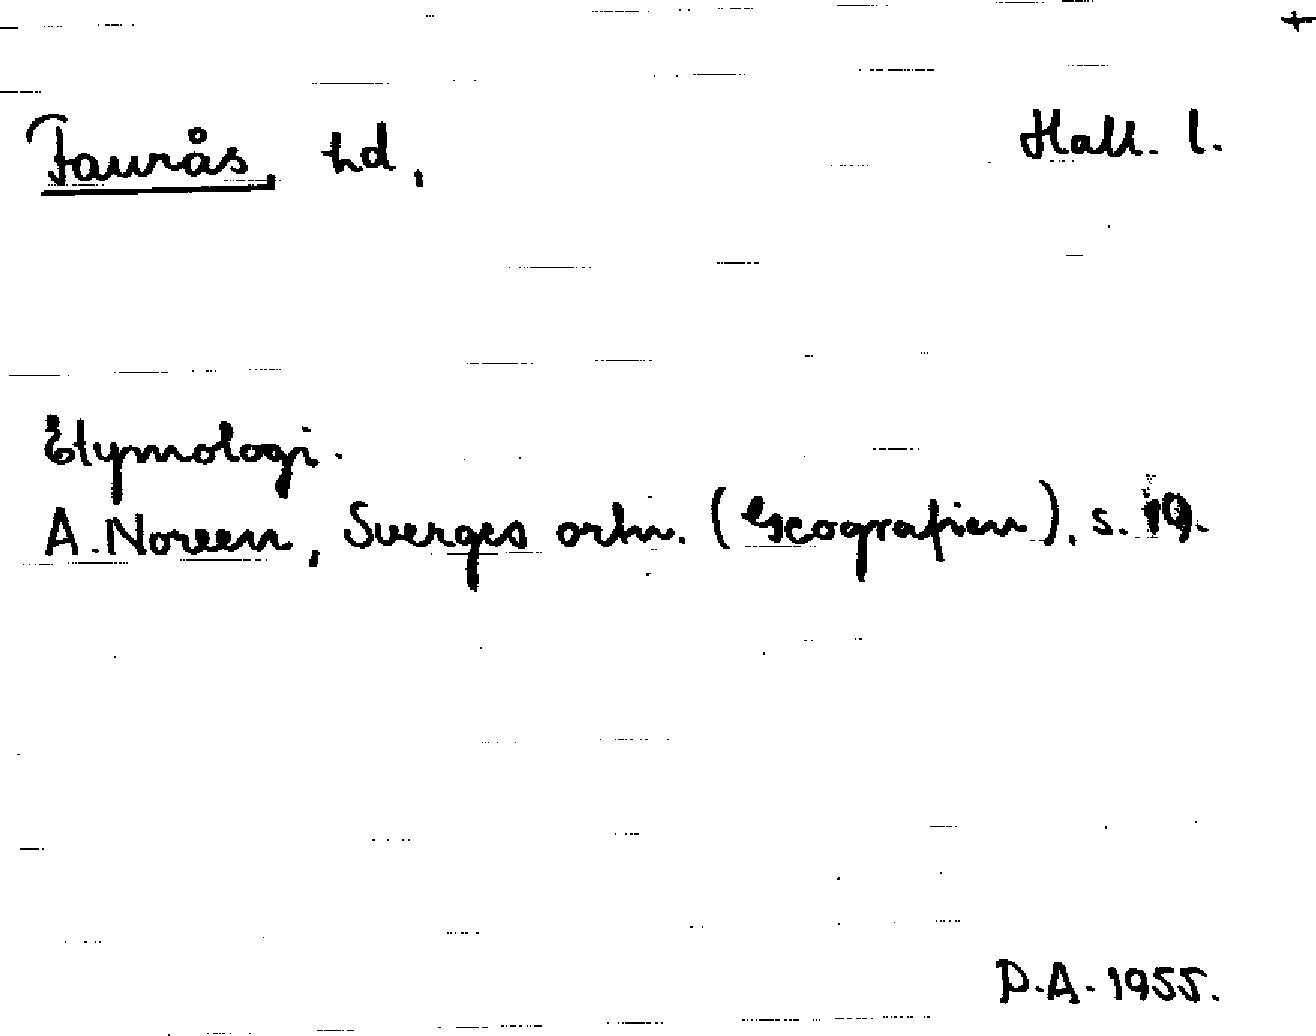 +
Faurås, hd,
Hall. l.
Etymologi.
A. Noreen, Sverges ortn. (Geografien), s. 19.
D.A. 1955.